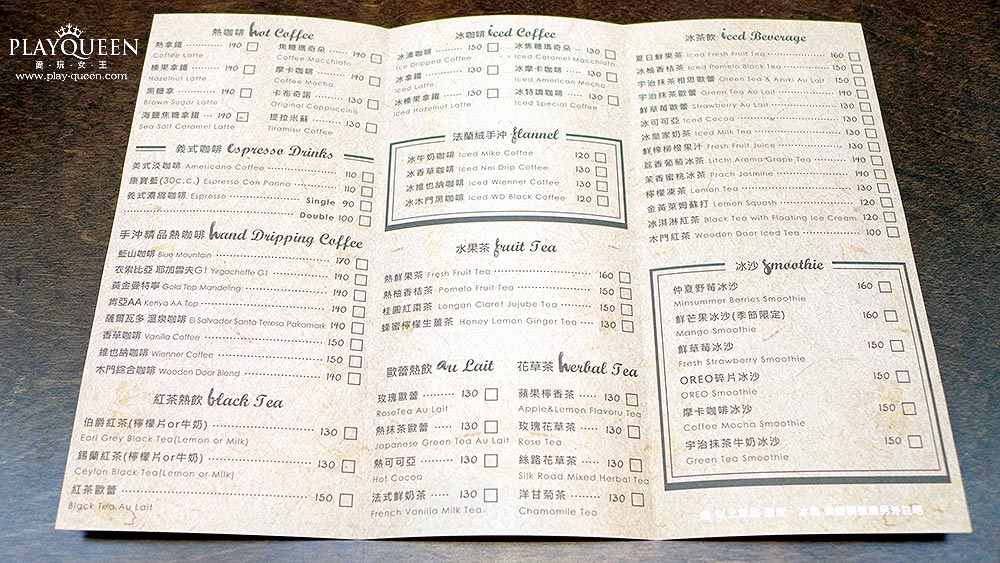 PLAYQUEEN
愛玩女王
www.play-queen.com
熱咖啡 hot Coffee
熱拿鐵 190
Coffee Latte
榛果拿鐵 140
Hazelnut Latte
黑糖拿 190
Brown Sugar Latte
海鹽焦糖拿鐵 140
Sea Salt Caramel Latte
焦糖瑪奇朵 140
Coffee Macchiato
摩卡咖啡 140
Coffee Mocha
卡布奇諾 130
Original Cappuccino
提拉米蘇 130
Tiramisu Coffee
義式咖啡 Espresso Drinks
美式淡咖啡 Americano Coffee 110
康寶藍(30c.c.) Espresso Con Panna 110
義式濃縮咖啡 Espresso Single 90
Double 100
手沖精品熱咖啡 hand Dripping Coffee
藍山咖啡 Blue Mountain 170
衣索比亞 耶加雪夫G1 Yirgacheffe G1 140
黃金曼特寧 Gold Top Mandeling 140
肯亞AA Kenya AA Top 140
薩爾瓦多 溫泉咖啡 El Salvador Santa Teresa Pakamark 140
香草咖啡 Vanilla Coffee 150
維也納咖啡 Wienner Coffee 150
木門綜合咖啡 Wooden Door Blend 140
紅茶熱飲 black Tea
伯爵紅茶(檸檬片or牛奶) 130
Earl Grey Black Tea(Lemon or Milk)
錫蘭紅茶(檸檬片or牛奶) 130
Ceylon Black Tea(Lemon or Milk)
紅茶歐蕾 150
Black Tea Au Lait
冰咖啡 iced Coffee
冰滴咖啡 150
Ice Dripped Coffee
冰拿鐵 130
Iced Latte
冰榛果拿鐵 130
Iced Hazelnut Latte
冰焦糖瑪奇朵 130
Iced Caramel Macchiato
冰摩卡咖啡 140
Iced American Mocha
冰特調咖啡 130
Iced Special Coffee
法蘭絨手沖 flannel
冰牛奶咖啡 Iced Mike Coffee 120
冰香草咖啡 Iced Nei Drip Coffee 130
冰維也納咖啡 Iced Wienner Coffee 130
冰木門黑咖啡 Iced WD Black Coffee 120
水果茶 fruit Tea
熱鮮果茶 Fresh Fruit Tea 160
熱柚香桔茶 Pomelo Fruit Tea 150
桂圓紅棗茶 Longan Claret Jujube Tea 150
蜂蜜檸檬生薑茶 Honey Lemon Ginger Tea 130
歐蕾熱飲 au Lait
玫瑰歐蕾 150
RoseTea Au Lait
熱抹茶歐蕾 150
Japanese Green Tea Au Lait
熱可可亞 130
Hot Cocoa
法式鮮奶茶 130
French Vanilla Milk Tea
花草茶 herbal Tea
蘋果檸香茶 130
Apple&Lemon Flavoru Tea
玫瑰花草茶 130
Rose Tea
絲路花草茶 130
Silk Road Mixed Herbal Tea
洋甘菊茶 130
Chamomile Tea
冰茶飲 iced Beverage
夏日鮮果茶 Iced Fresh Fruit Tea 160
冰柚香桔茶 Iced Pomelo Black Tea 150
宇治抹茶相思歐蕾 Green Tea & Azuki Au Lait 150
宇治抹茶歐蕾 Green Tea Au Lait 140
鮮草莓歐蕾 Strawberry Au Lait 150
冰可可亞 Iced Cocoa 130
冰皇家奶茶 Iced Milk Tea 130
鮮榨柳橙果汁 Fresh Fruit Juice 130
荔香葡萄冰茶 Litchi Aroma Grape Tea 160
茉香蜜桃冰茶 Prach Jasmine 140
檸檬凍茶 Lemon Tea 130
金黃萊姆蘇打 Lemon Squash 120
冰淇淋紅茶 Black Tea with Floating Ice Cream 120
木門紅茶 Wooden Door Iced Tea 100
冰沙 Smoothie
仲夏野莓冰沙 160
Minsummer Berries Smoothie
鮮芒果冰沙(季節限定) 160
Mango Smoothie
鮮草莓冰沙 150
Fresh Strawberry Smoothie
OREO碎片冰沙 150
OREO Smoothie
摩卡咖啡冰沙 150
Coffee Mocha Smoothie
宇治抹茶牛奶冰沙 150
Green Tea Smoothie
以上飲品 甜度、冰塊